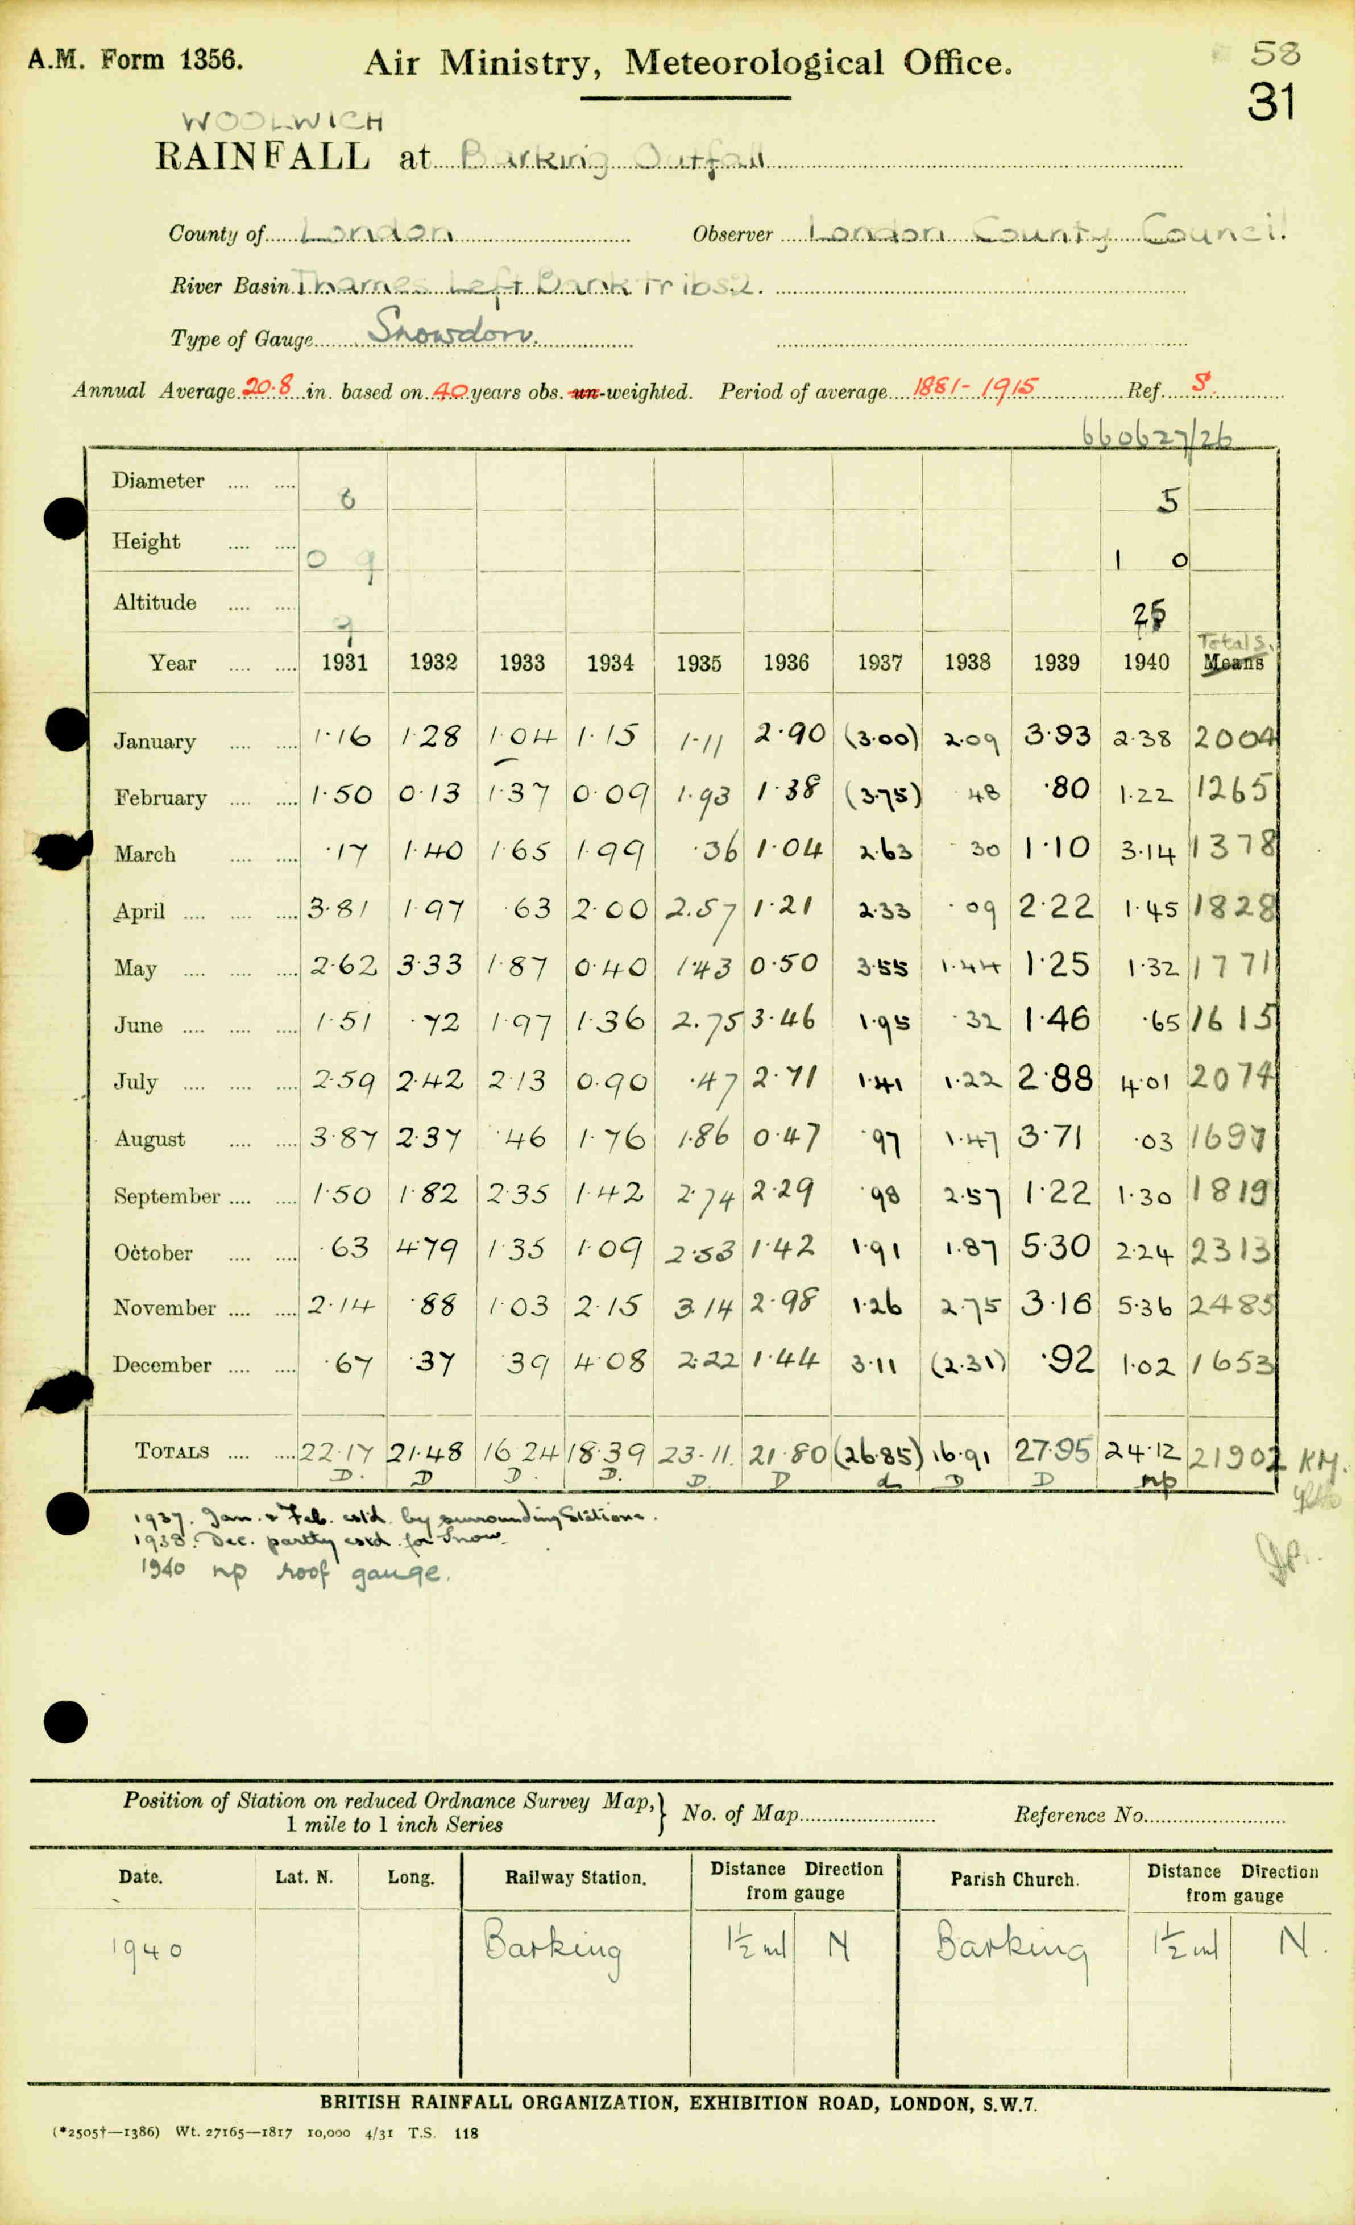 A.M. Form 1356. Air Ministry, Meteorological Office. 58
31
WOOLWICH
RAINFALL at Barking Outfall
County of London Observer London County Council
River Basin Thames Left Bank Tribs 2.
Type of Gauge Snowdon.
Annual Average 20.8 in. based on 40 years obs. un-weighted. Period of average 1881-1915 Ref. S.
660627/26
Diameter .... .... 8 5
Height .... .... 0 9 1 0
Altitude .... .... 9 25
Totals.
Year .... .... 1931 1932 1933 1934 1935 1936 1937 1938 1939 1940 Means
January .... .... 1.16 1.28 1.04 1.15 1.11 2.90 (3.00) 2.09 3.93 2.38 2004
February .... .... 1.50 0.13 1.37 0.09 1.93 1.38 (3.75) .48 .80 1.22 1265
March .... .... .17 1.40 1.65 1.99 .36 1.04 2.63 .30 1.10 3.14 1378
April .... .... .... 3.81 1.97 .63 2.00 2.57 1.21 2.33 .09 2.22 1.45 1828
May .... .... .... 2.62 3.33 1.87 0.40 1.43 0.50 3.55 1.44 1.25 1.32 1771
June .... .... .... 1.51 .72 1.97 1.36 2.75 3.46 1.95 .32 1.46 .65 1615
July .... .... .... 2.59 2.42 2.13 0.90 .47 2.71 1.41 1.22 2.88 4.01 2074
August .... .... 3.87 2.37 .46 1.76 1.86 0.47 .97 1.47 3.71 .03 1697
September .... .... 1.50 1.82 2.35 1.42 2.74 2.29 .98 2.57 1.22 1.30 1819
October .... .... .63 4.79 1.35 1.09 2.53 1.42 1.91 1.87 5.30 2.24 2313
November .... .... 2.14 .88 1.03 2.15 3.14 2.98 1.26 2.75 3.16 5.36 2485
December .... .... .67 .37 .39 4.08 2.22 1.44 3.11 (2.31) .92 1.02 1653
TOTALS .... .... 22.17 21.48 16.24 18.39 23.11 21.80 (26.85) 16.91 27.95 24.12 21902 KM.
D. D D. D. D. D d D D np
1937. Jan. & Feb. estd. by surrounding Stations.
1938. Dec. partly estd. for Snow.
1940 np roof gauge.
Position of Station on reduced Ordnance Survey Map, 1 mile to 1 inch Series } No. of Map Reference No.
Date. Lat. N. Long. Railway Station. Distance Direction from gauge Parish Church. Distance Direction from gauge
1940 Barking 1½ ml N Barking 1½ ml N.
BRITISH RAINFALL ORGANIZATION, EXHIBITION ROAD, LONDON, S.W.7.
(*2505†—1386) Wt. 27165—1817 10,000 4/31 T.S. 118